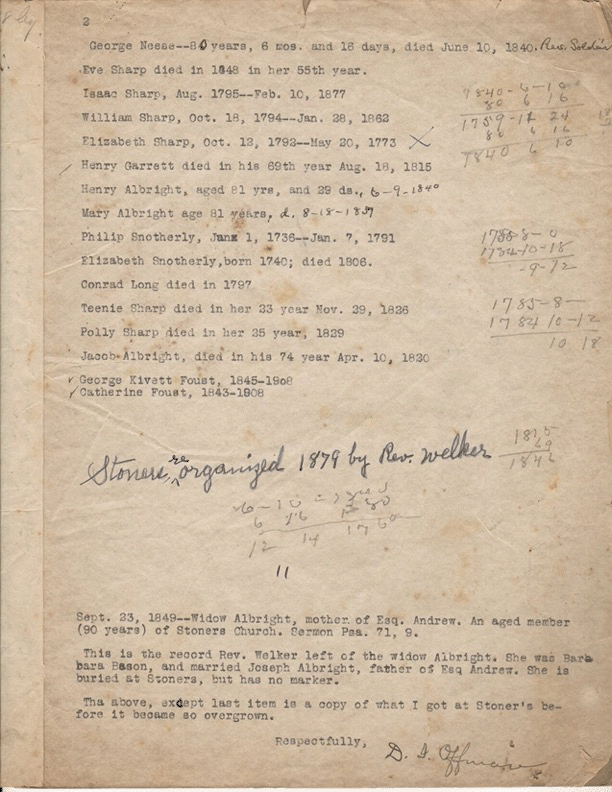 2
George Neese--80 years, 6 mos. and 16 days, died June 10, 1840. Rev. Soldier
Eve Sharp died in 1848 in her 55th year.
Isaac Sharp, Aug. 1795--Feb. 10, 1877
William Sharp, Oct. 18, 1794--Jan. 28, 1862
Elizabeth Sharp, Oct. 12, 1792--May 20, 1773 X
Henry Garrett died in his 69th year Aug. 18, 1815
Henry Albright, aged 81 yrs, and 29 ds., 6-9-1840
Mary Albright age 81 years, d. 8-18-1837
Philip Snotherly, Jan 1, 1736--Jan. 7, 1791
Elizabeth Snotherly,born 1740; died 1806.
Conrad Long died in 1797
Teenie Sharp died in her 23 year Nov. 29, 1826
Polly Sharp died in her 25 year, 1829
Jacob Albright, died in his 74 year Apr. 10, 1820
George Kivett Foust, 1845-1908
Catherine Foust, 1843-1908
1840-6-10
80 6 16
1759-12 24
80 6 16
1840 6 10
1784-10-18
-9-12
1785-8-
1784 10-12
10 18
1815
69
Stoners reorganized 1879 by Rev. Welker
12 14 1760
11
Sept. 23, 1849--Widow Albright, mother of Esq. Andrew. An aged member
(90 years) of Stoners Church. Sermon Psa. 71, 9.
This is the record Rev. Welker left of the widow Albright. She was Bar
bara Bason, and married Joseph Albright, father of Esq Andrew. She is
buried at Stoners, but has no marker.
Tha above, except last item is a copy of what I got at Stoner's be-
fore it became so overgrown.
Respectfully,
D. I. Offman